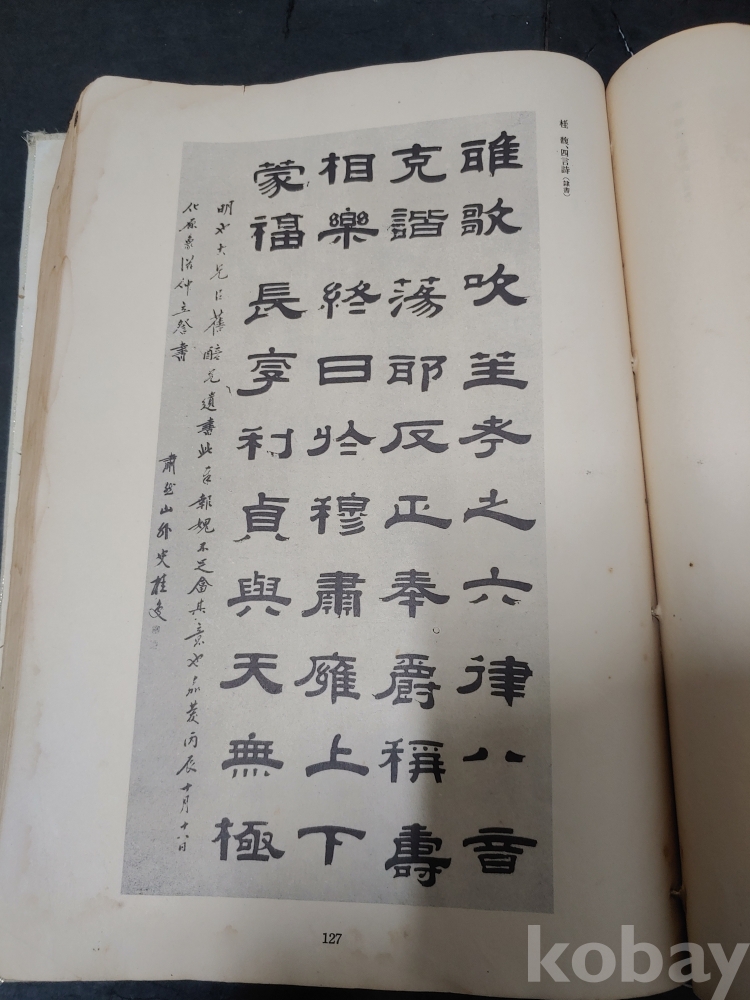 桂 馥、四言詩(隷書)
雅歌吹笙考之六律八音
克諧蕩耶反正奉爵稱壽
相樂終日於穆肅雍上下
蒙福長享利貞與天無極
明也大兄遺書此以報媿不足會其意也嘉慶丙辰十月十八日
書
肅然山外史桂馥
127
kobay